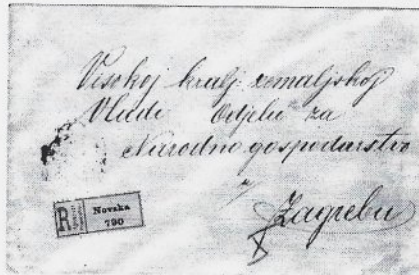 Visokoj kralj. zemaljskoj
Vladi Odjelu za
Narodno gospodarstvo
u
Zagrebu
R Novska
790